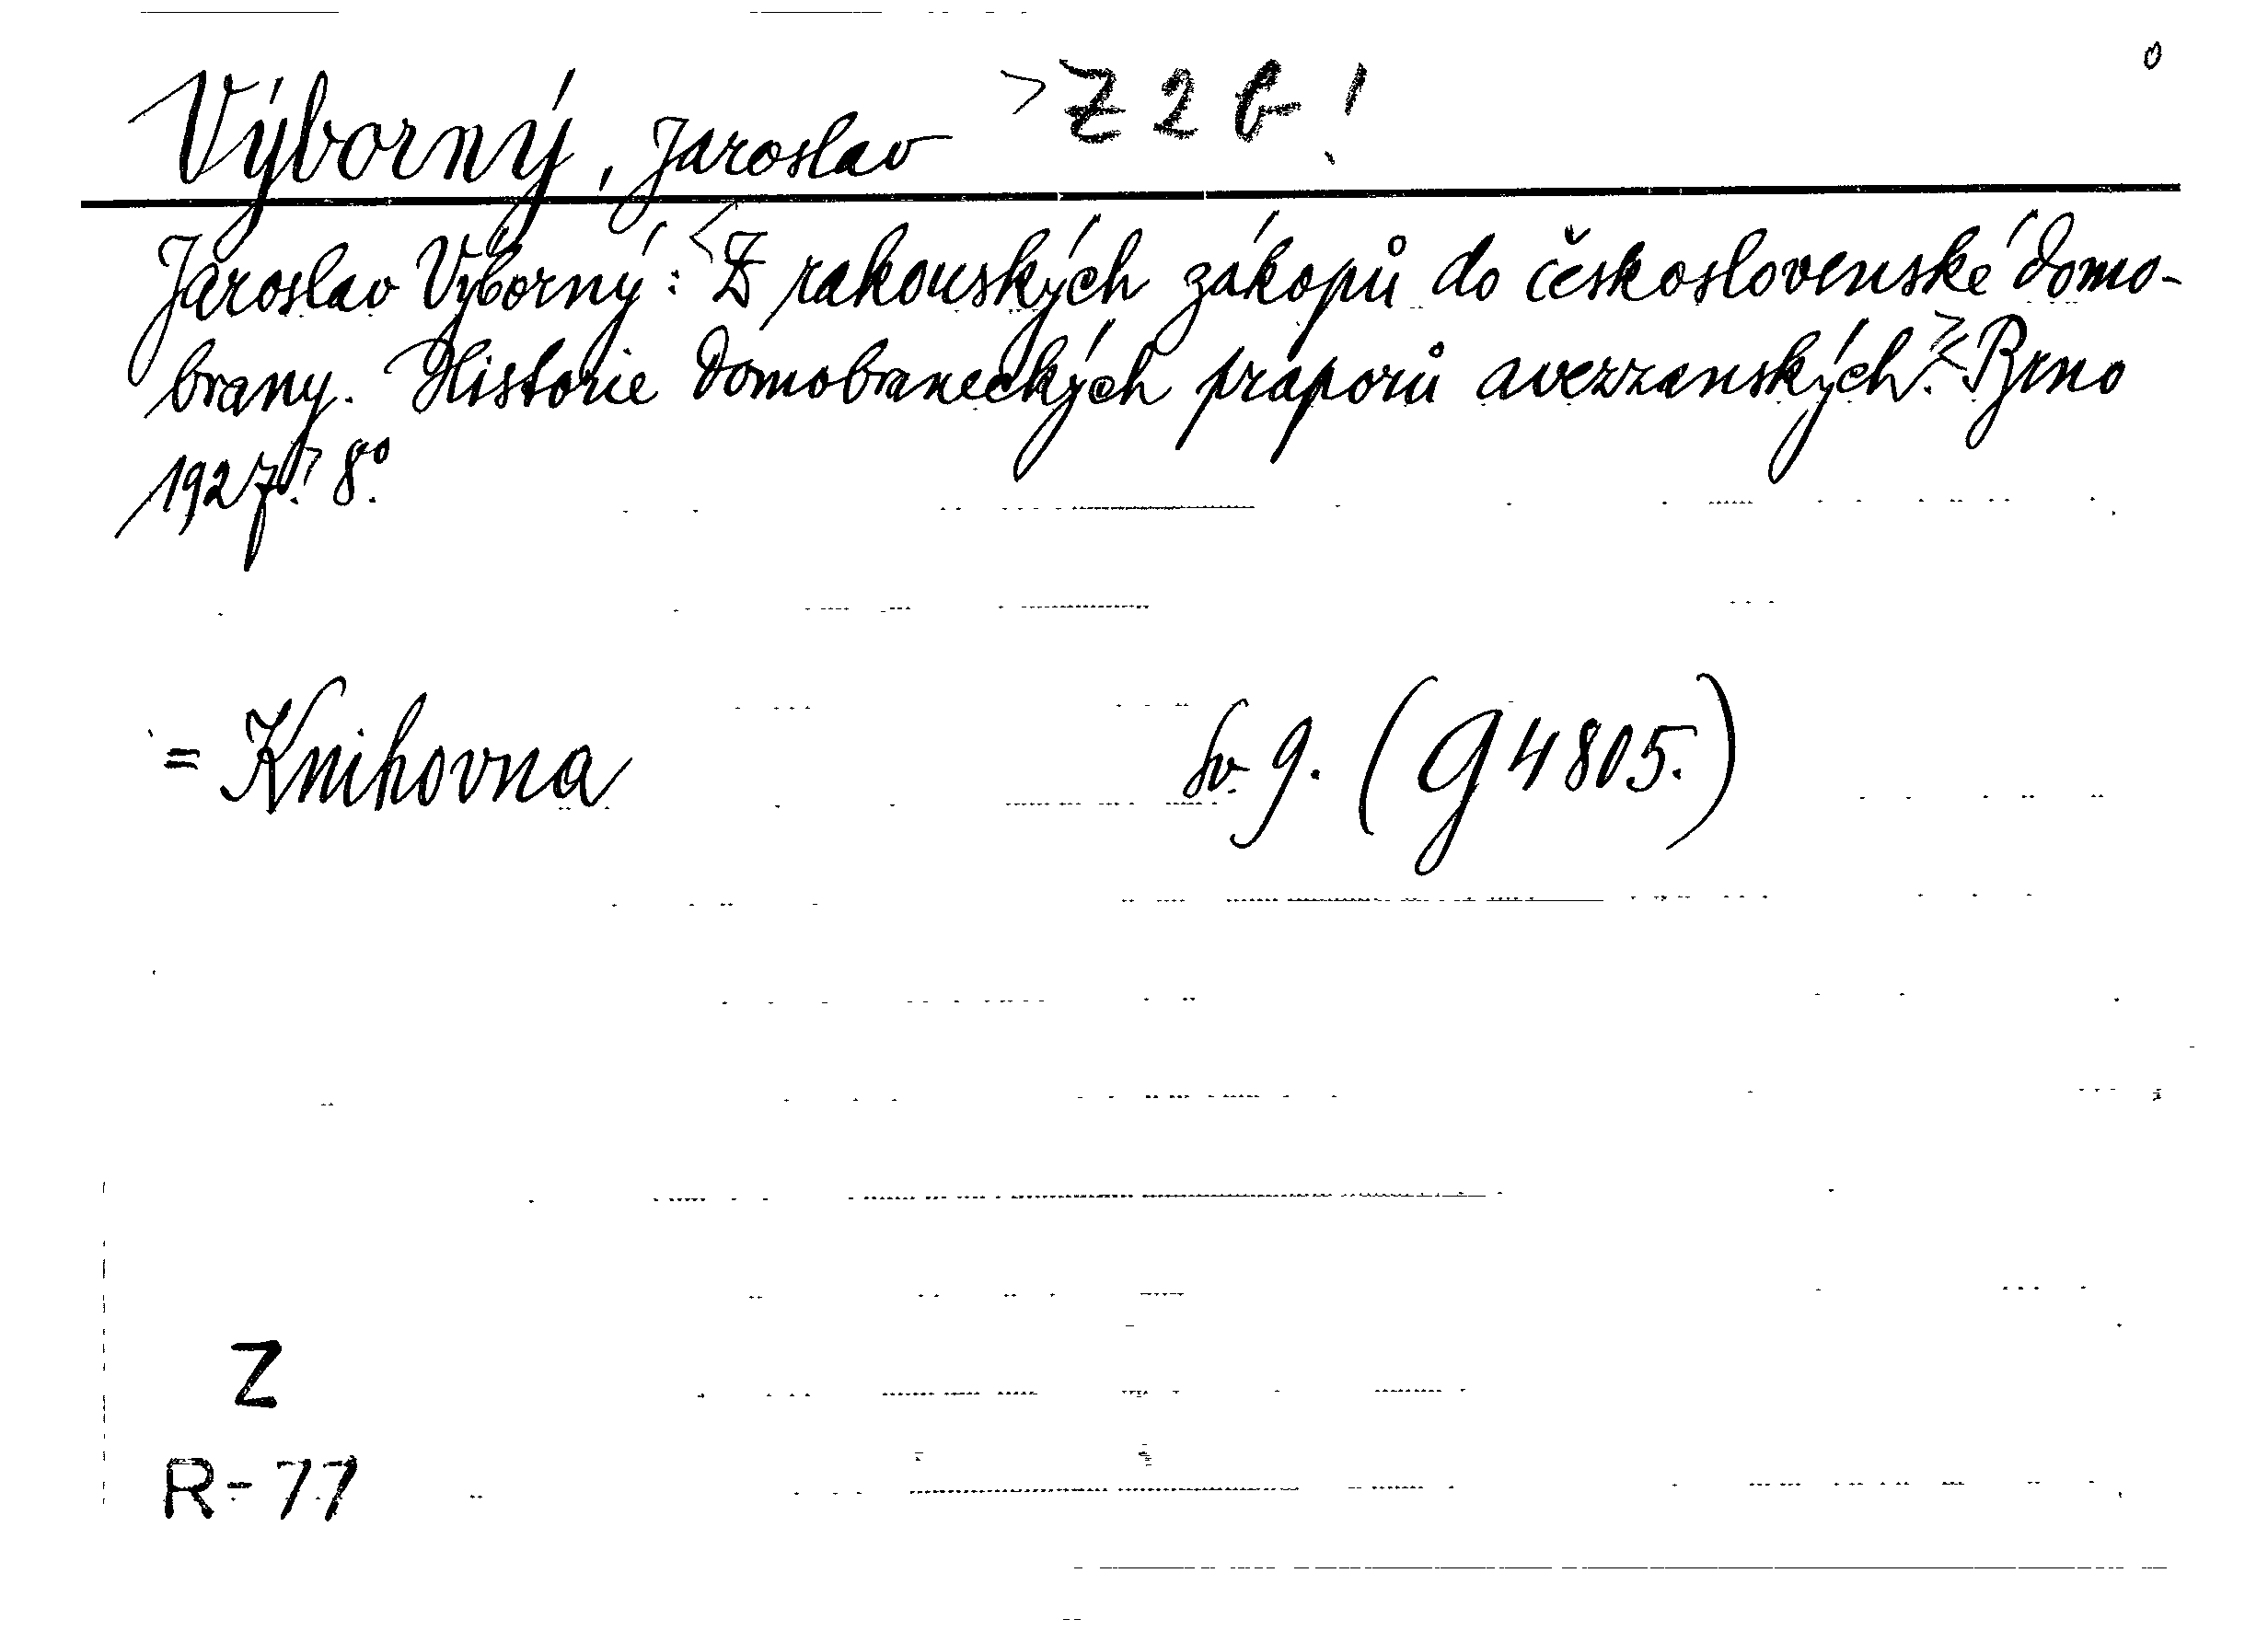 Výborný, Jaroslav >Z 2 b!
Jaroslav Výborný: <Z rakouských zákopů do československé domo-
brany. Historie domobraneckých praporů avezzanských.> <Brno
1927.> 8°.
= Knihovna sv. 9. (G 4805.)
Z
R-77